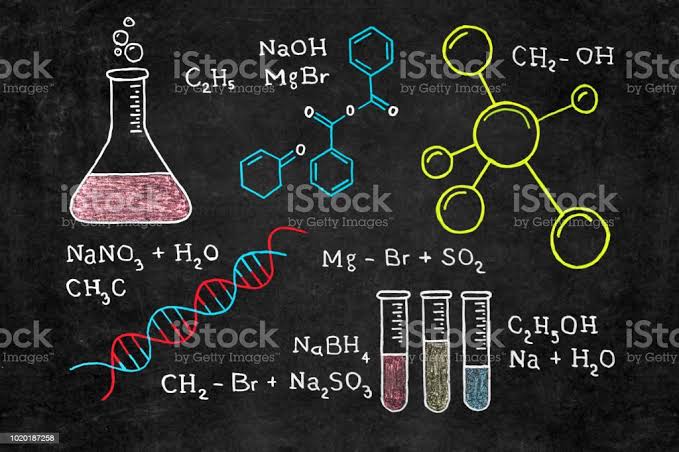 NaOH
C₂H₅ MgBr
CH₂ - OH
O
O
O
O
NaNO₃ + H₂O
CH₃C
Mg - Br + SO₂
NaBH₄
CH₂ - Br + Na₂SO₃
C₂H₅OH
Na + H₂O
iStock
by Getty Images™
1020187258